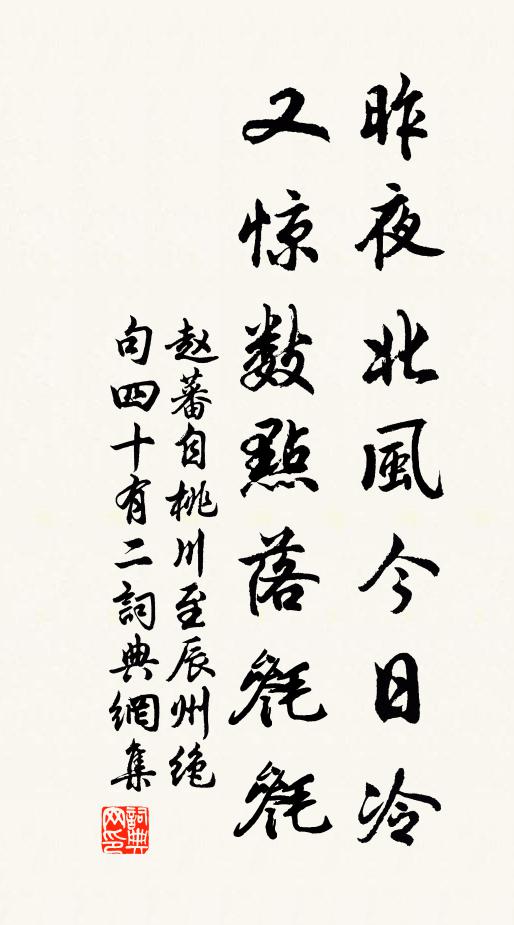 昨夜北風今日冷
又惊數點落毵毵
赵蕃自桃川至辰州绝
句四十有二詞典網集
詞典
网印